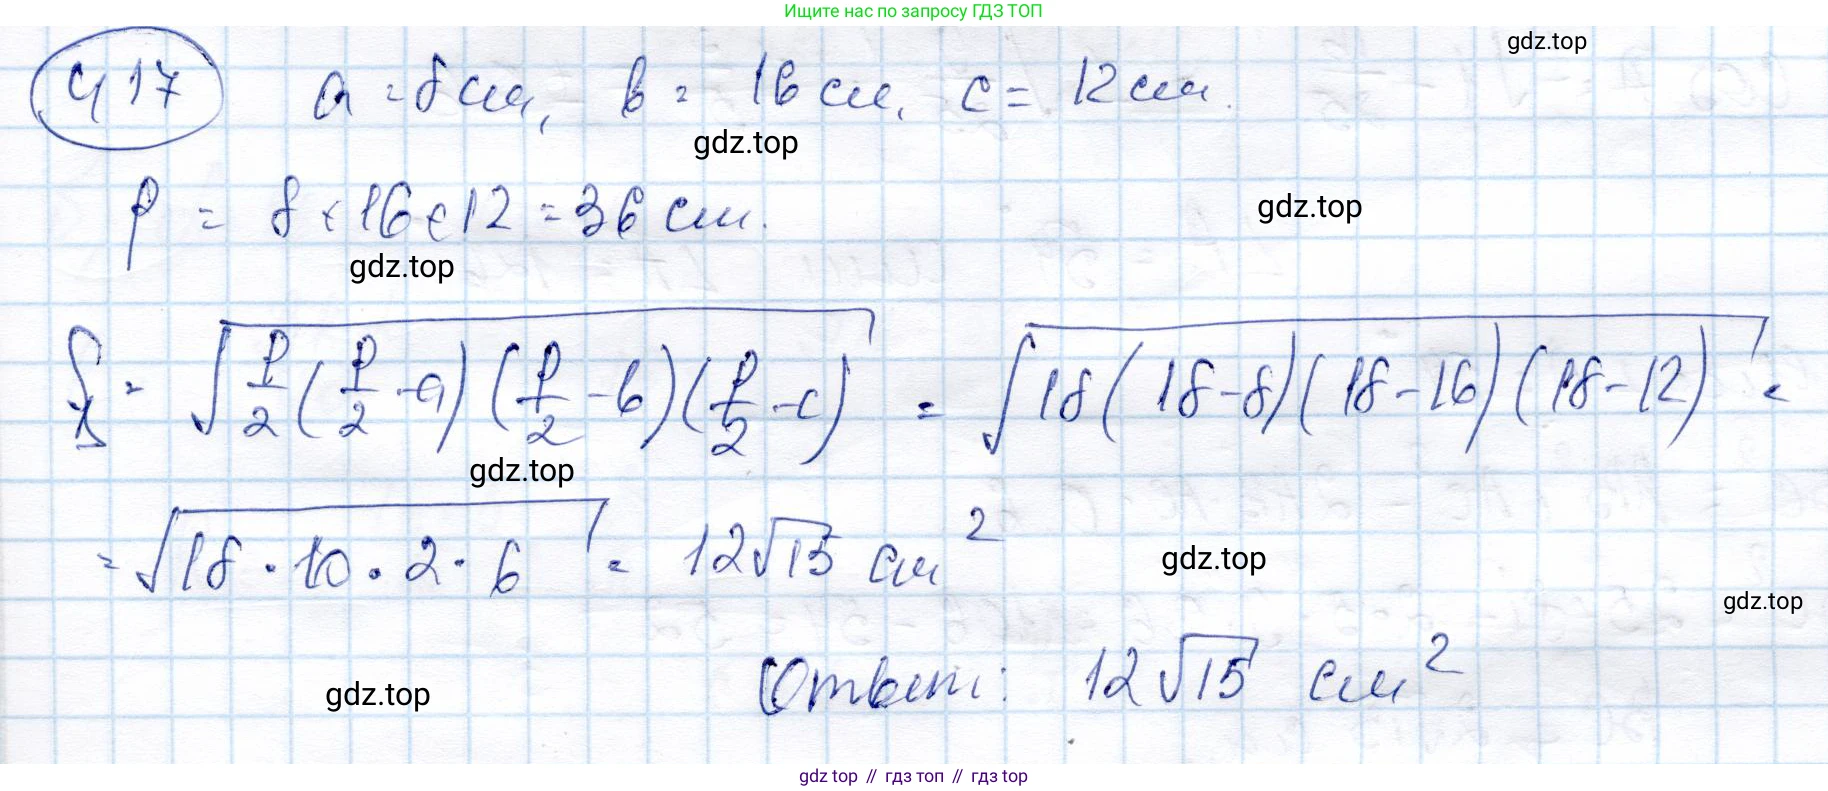 Ищите нас по запросу ГДЗ ТОП
gdz.top
417 a = 8 см, b = 16 см, c = 12 см.
gdz.top
P = 8 + 16 + 12 = 36 см.
gdz.top
gdz.top
S△ = √(P/2(P/2-a)(P/2-b)(P/2-c)) = √(18(18-8)(18-16)(18-12)) =
gdz.top
= √(18·10·2·6) = 12√15 см²
gdz.top
gdz.top
Ответ: 12√15 см²
gdz.top
gdz top // гдз топ // gdz top